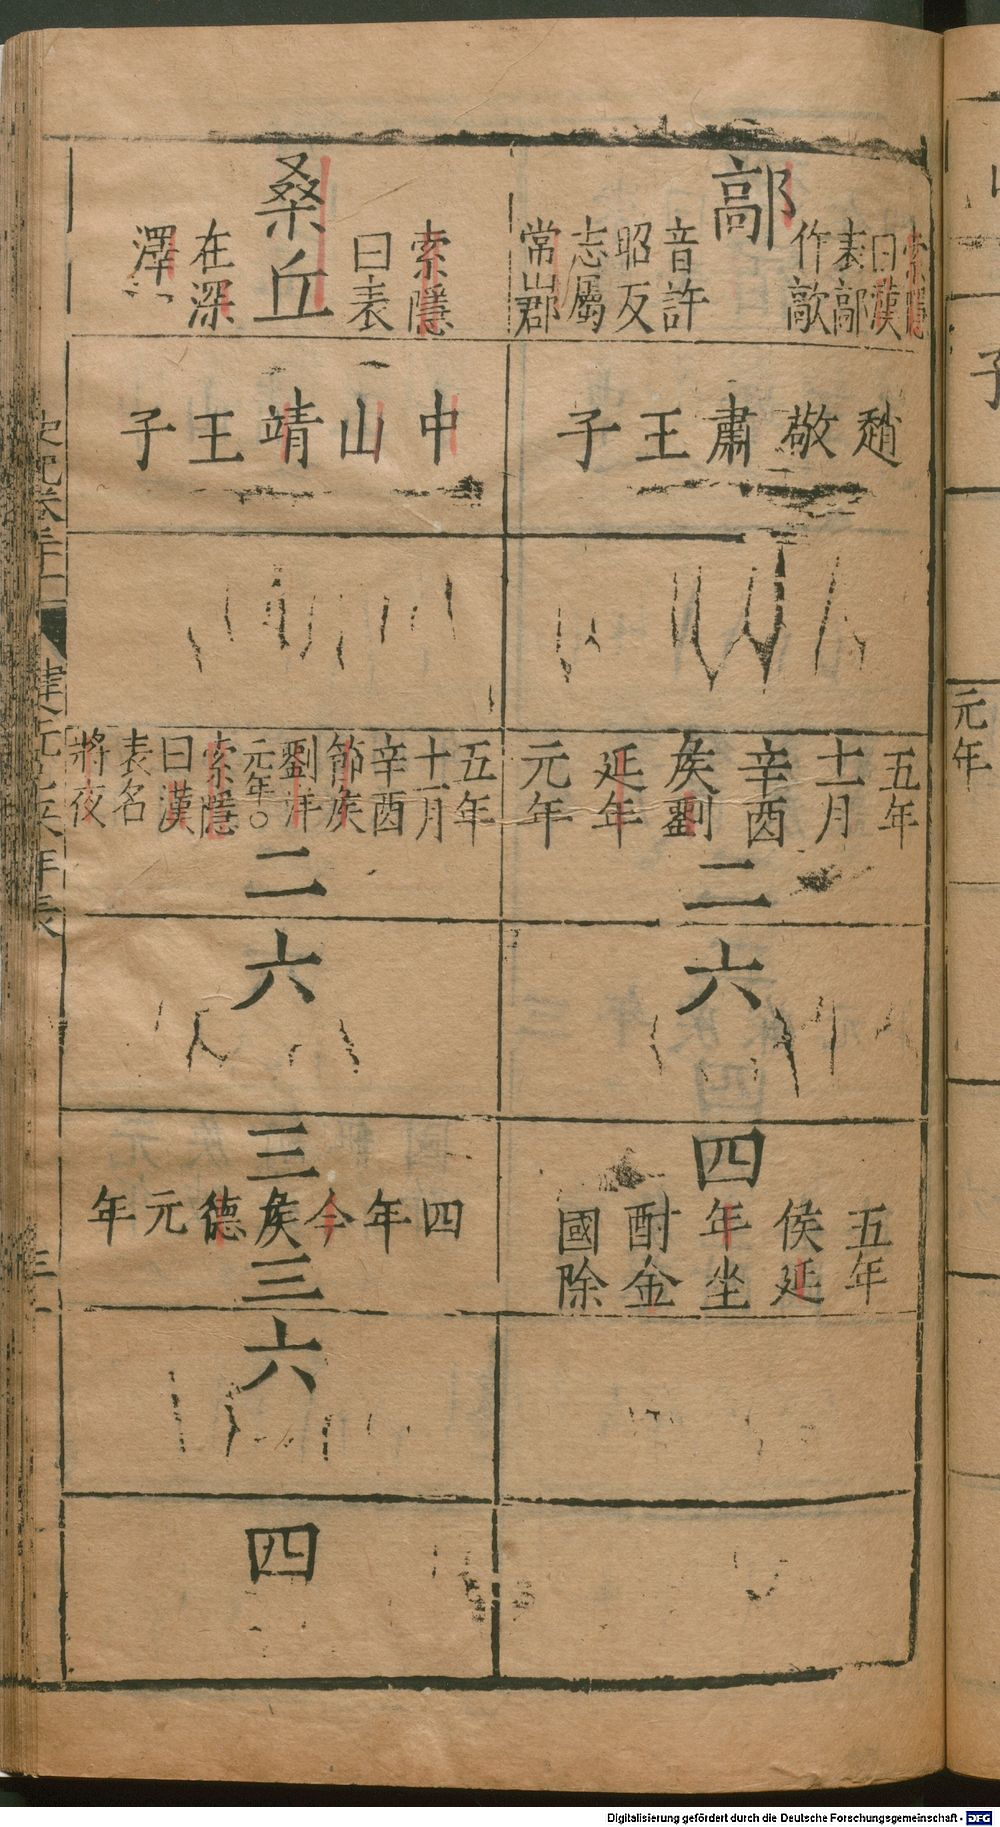 鄗
索隱
曰漢
表鄗
作敵
音許
昭反
志屬
常山郡
趙敬肅王子
五年
十一月
辛酉
侯劉
延年
元年
二
六
四
五年
侯延
年坐
酎金
國除
桑丘
索隱
曰表
在深
澤
中山靖王子
五年
十一月
辛酉
節侯
劉洋
元年○
索隱
曰漢
表名
將夜
二
六
三
四年今侯德元年
三
六
四
元年
子
Digitalisierung gefördert durch die Deutsche Forschungsgemeinschaft - DFG